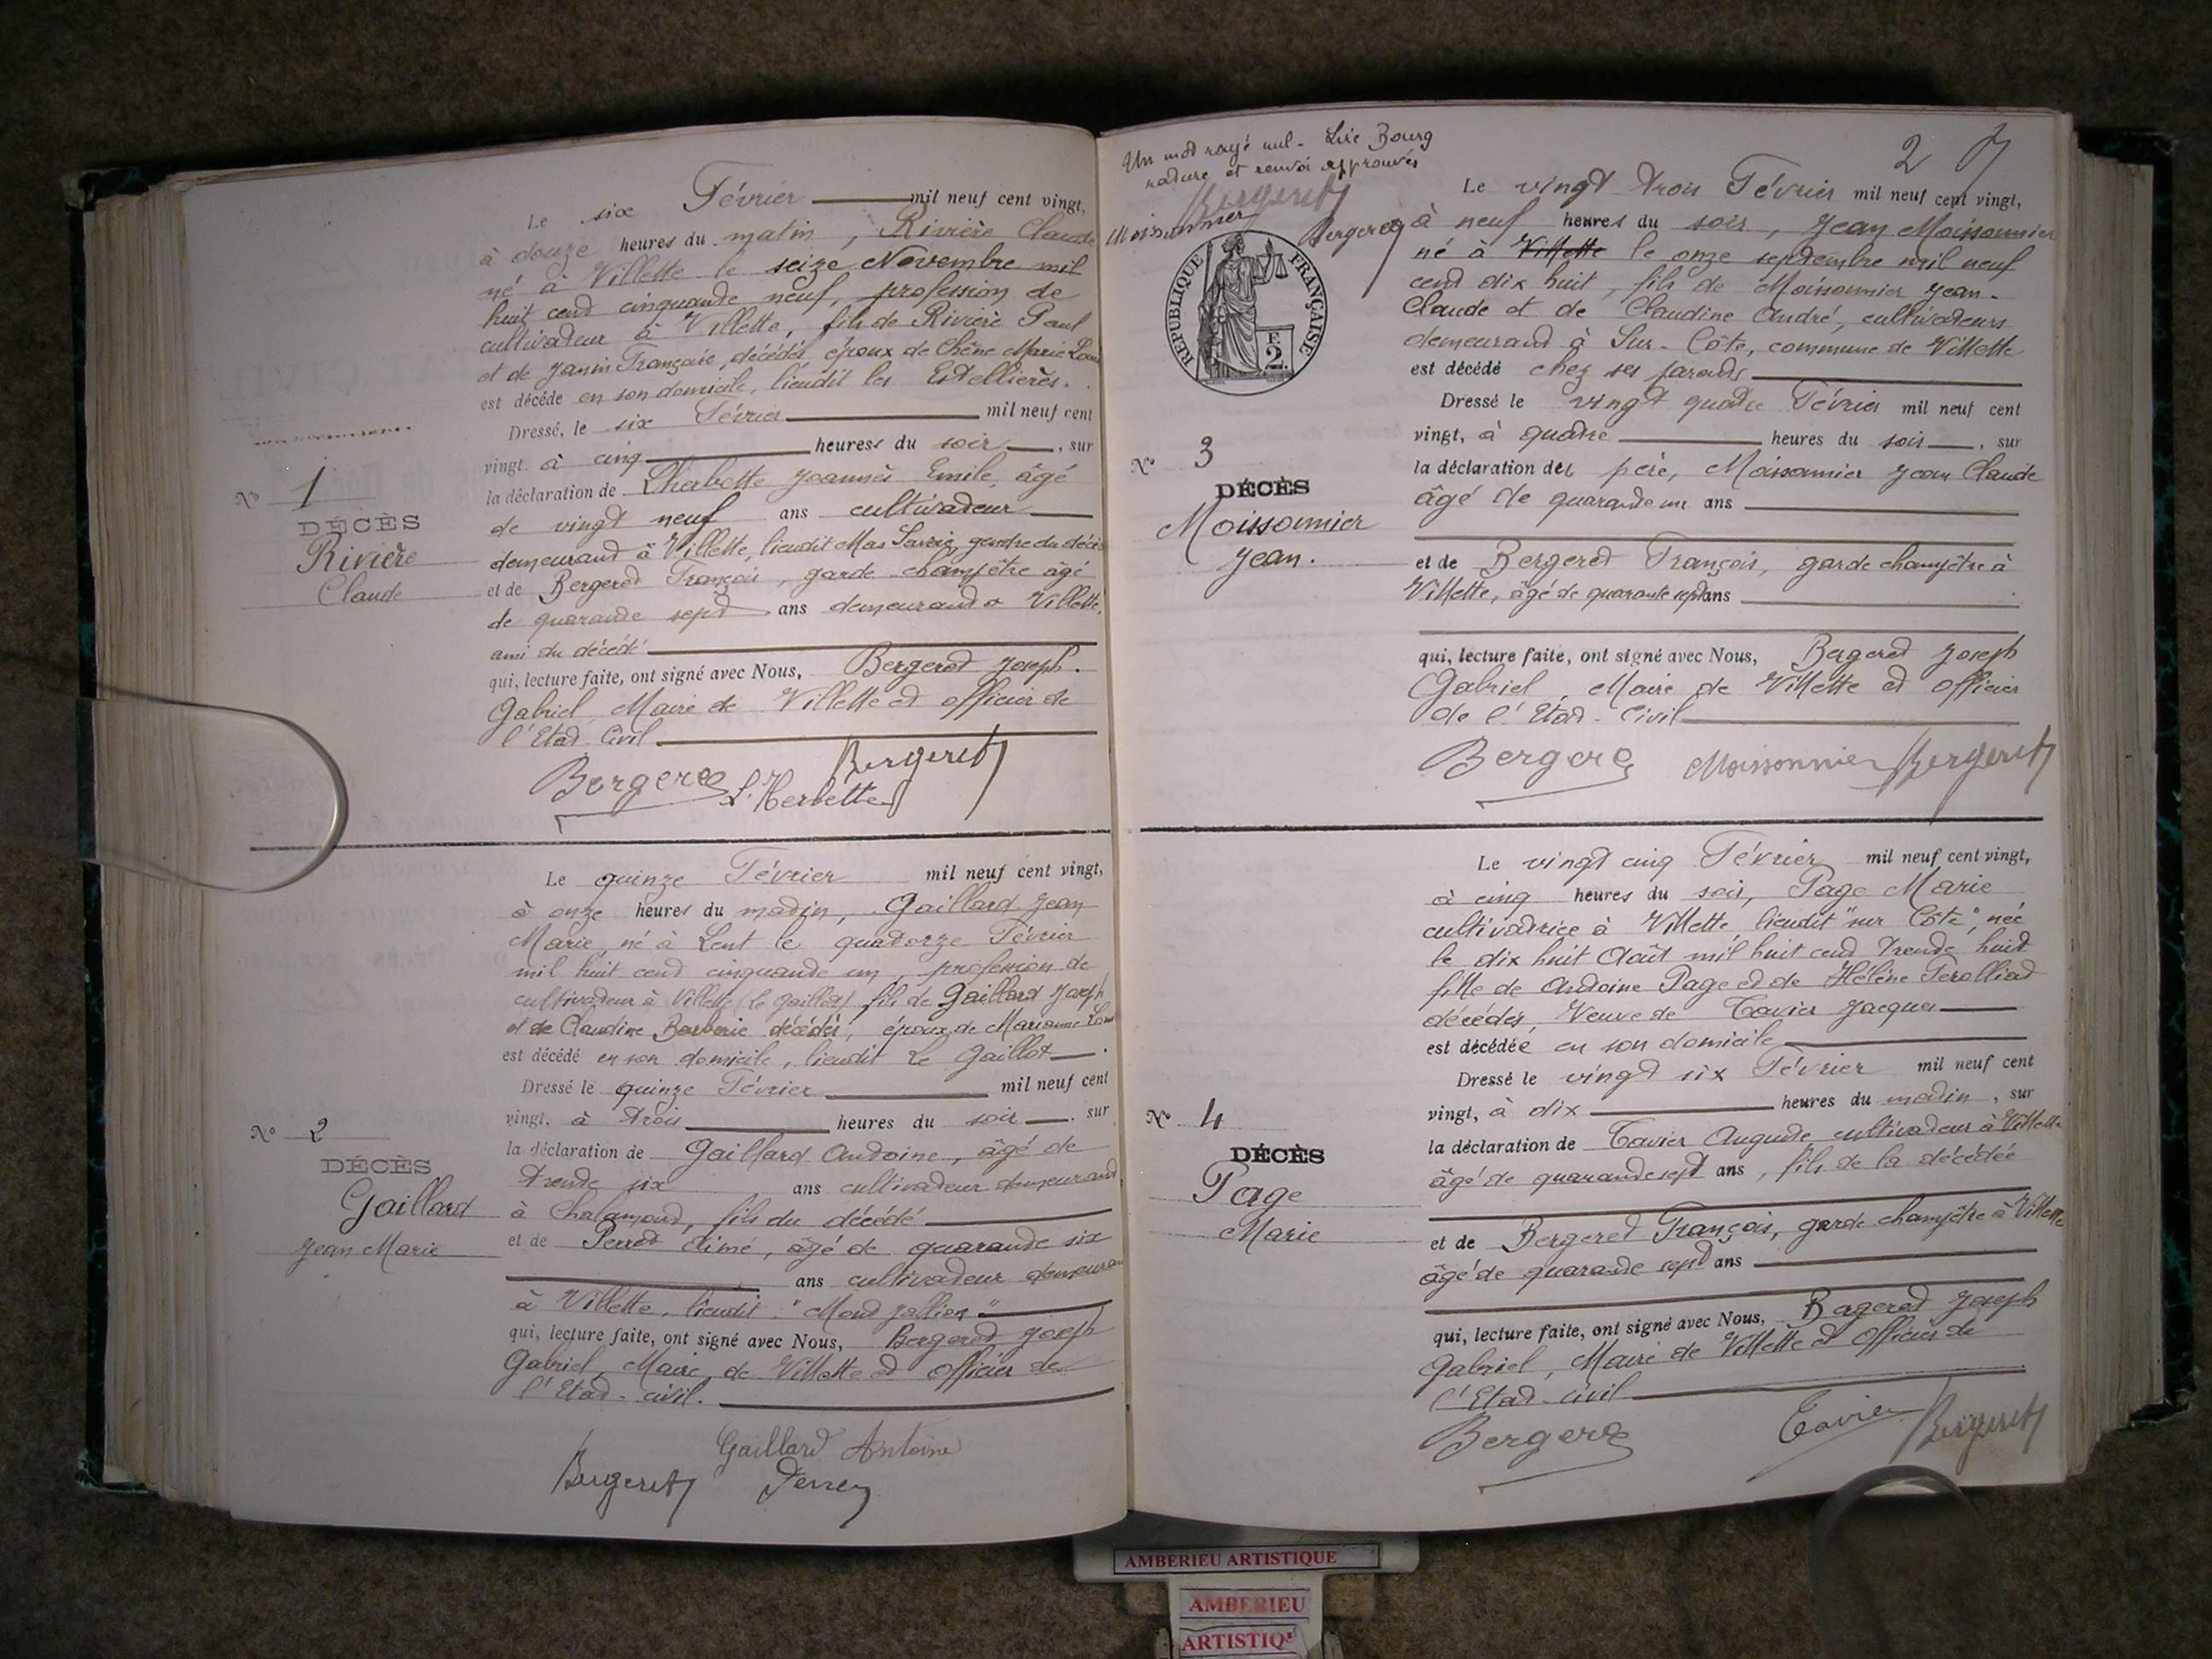 Le six Février mil neuf cent vingt,
à douze heures du matin, Rivière Claude
né à Villette le seize Novembre mil
huit cent cinquante neuf, profession de
cultivateur à Villette, fils de Rivière Paul
et de Janin Françoise, décédés, époux de Chêne Marie
est décédé en son domicile, lieudit les
Dressé, le six Février mil neuf cent
vingt à cinq heures du soir, sur
la déclaration de Lherbette Joannès Emile, âgé
de vingt neuf ans cultivateur
demeurant à Villette, lieudit Mas gendre du
et de Bergeret François, garde champêtre âgé
de quarante sept ans demeurant à Villette,
ami du décédé
qui, lecture faite, ont signé avec Nous, Bergeret Joseph.
Gabriel Maire de Villette et officier de
l'Etat Civil
Bergeret
L'Herbette
Bergeret
N° 1
DÉCÈS
Rivière
Claude
Le quinze Février mil neuf cent vingt,
à onze heures du matin, Gaillard Jean
Marie, né à Lent le quatorze Février
mil huit cent cinquante un, profession de
cultivateur à Villette (le Gaillot) fils de Gaillard Joseph
et de Claudine Barberie décédés, époux de Marianne
est décédé en son domicile, lieudit Le Gaillot.
Dressé le quinze Février mil neuf cent
vingt, à trois heures du soir, sur
la déclaration de Gaillard Antoine, âgé de
trente six ans cultivateur demeurant
à Chalamont, fils du décédé
et de Perret Aimé, âgé de quarante six
ans cultivateur demeurant
à Villette, lieudit "Mont Jallier"
qui, lecture faite, ont signé avec Nous, Bergeret Joseph
Gabriel, Maire de Villette et officier de
l'Etat-civil.
Gaillard Antoine
Bergeret Perret
N° 2
DÉCÈS
Gaillard
Jean Marie
Un mot rayé nul - Lire Bourg
rature et renvoi approuvés
Bergeret
Moissonnier
Bergeret
RÉPUBLIQUE FRANÇAISE
F.
2.
2
Le vingt trois Février mil neuf cent vingt,
à neuf heures du soir, Jean Moissonnier
né à Villette le onze septembre mil neuf
cent dix huit, fils de Moissonnier Jean-
Claude et de Claudine André, cultivateurs
demeurant à Sur-Côte, commune de Villette
est décédé chez ses parents
Dressé le vingt quatre Février mil neuf cent
vingt, à quatre heures du soir, sur
la déclaration des père, Moissonnier Jean Claude
âgé de quarante un ans
et de Bergeret François, garde champêtre à
Villette, âgé de quarante sept ans
qui, lecture faite, ont signé avec Nous, Bergeret Joseph
Gabriel, Maire de Villette et officier
de l'Etat-Civil
Bergeret Moissonnier Bergeret
N° 3
DÉCÈS
Moissonnier
Jean.
Le vingt cinq Février mil neuf cent vingt,
à cinq heures du soir, Page Marie
cultivatrice à Villette, lieudit "sur Côte", née
le dix huit Août mil huit cent trente huit
fille de Antoine Page et de Hélène Ferolliat
décédés, Veuve de Tavier Jacques
est décédée en son domicile
Dressé le vingt six Février mil neuf cent
vingt, à dix heures du matin, sur
la déclaration de Tavier Auguste cultivateur à Villette
âgé de quarante sept ans, fils de la décédée
et de Bergeret François, garde champêtre à Villette
âgé de quarante sept ans
qui, lecture faite, ont signé avec Nous, Bergeret Joseph
Gabriel, Maire de Villette et Officier de
l'Etat-civil
Bergeret Tavier Bergeret
N° 4
DÉCÈS
Page
Marie
AMBERIEU ARTISTIQUE
AMBERIEU
ARTISTIQ